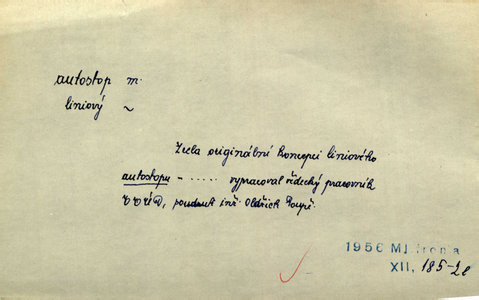 autostop m.
liniový ~
Zcela originální koncepci liniového
autostopu – ..... vypracoval vědecký pracovník
soudruh inž. Oldřich
1956
XII, 185-2c